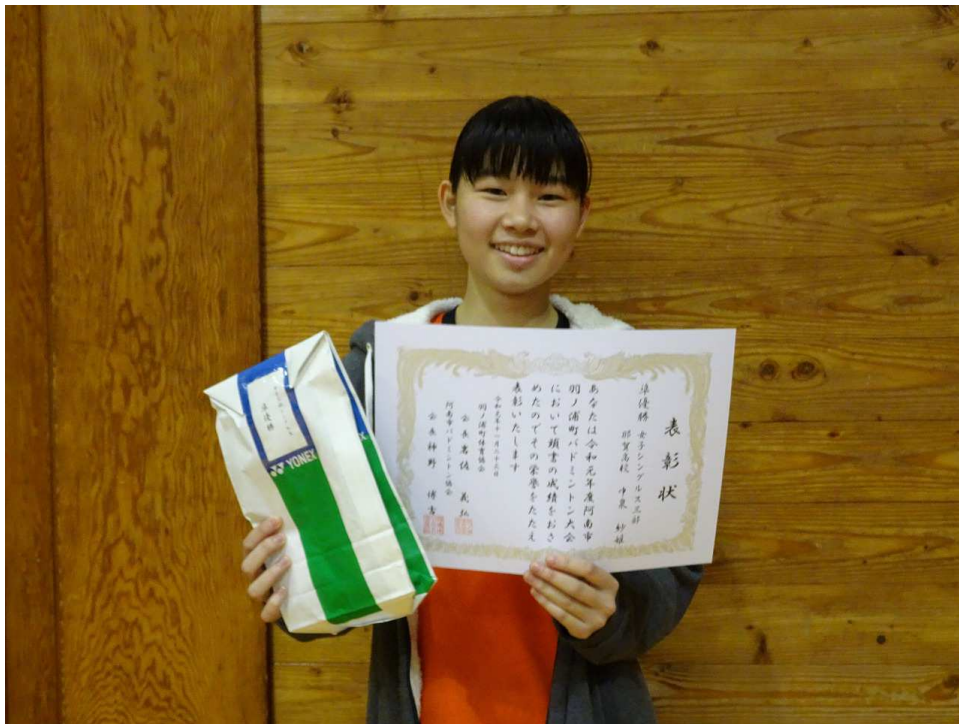 表彰状
準優勝 女子シングルス三部
那賀高校
あなたは令和元年度阿南市
羽ノ浦町バドミントン大会
において頭書の成績をおさ
めたのでその栄誉をたたえ
表彰いたします
羽ノ浦町体育協会
会長
阿南市バドミントン協会
会長
準優勝
YONEX